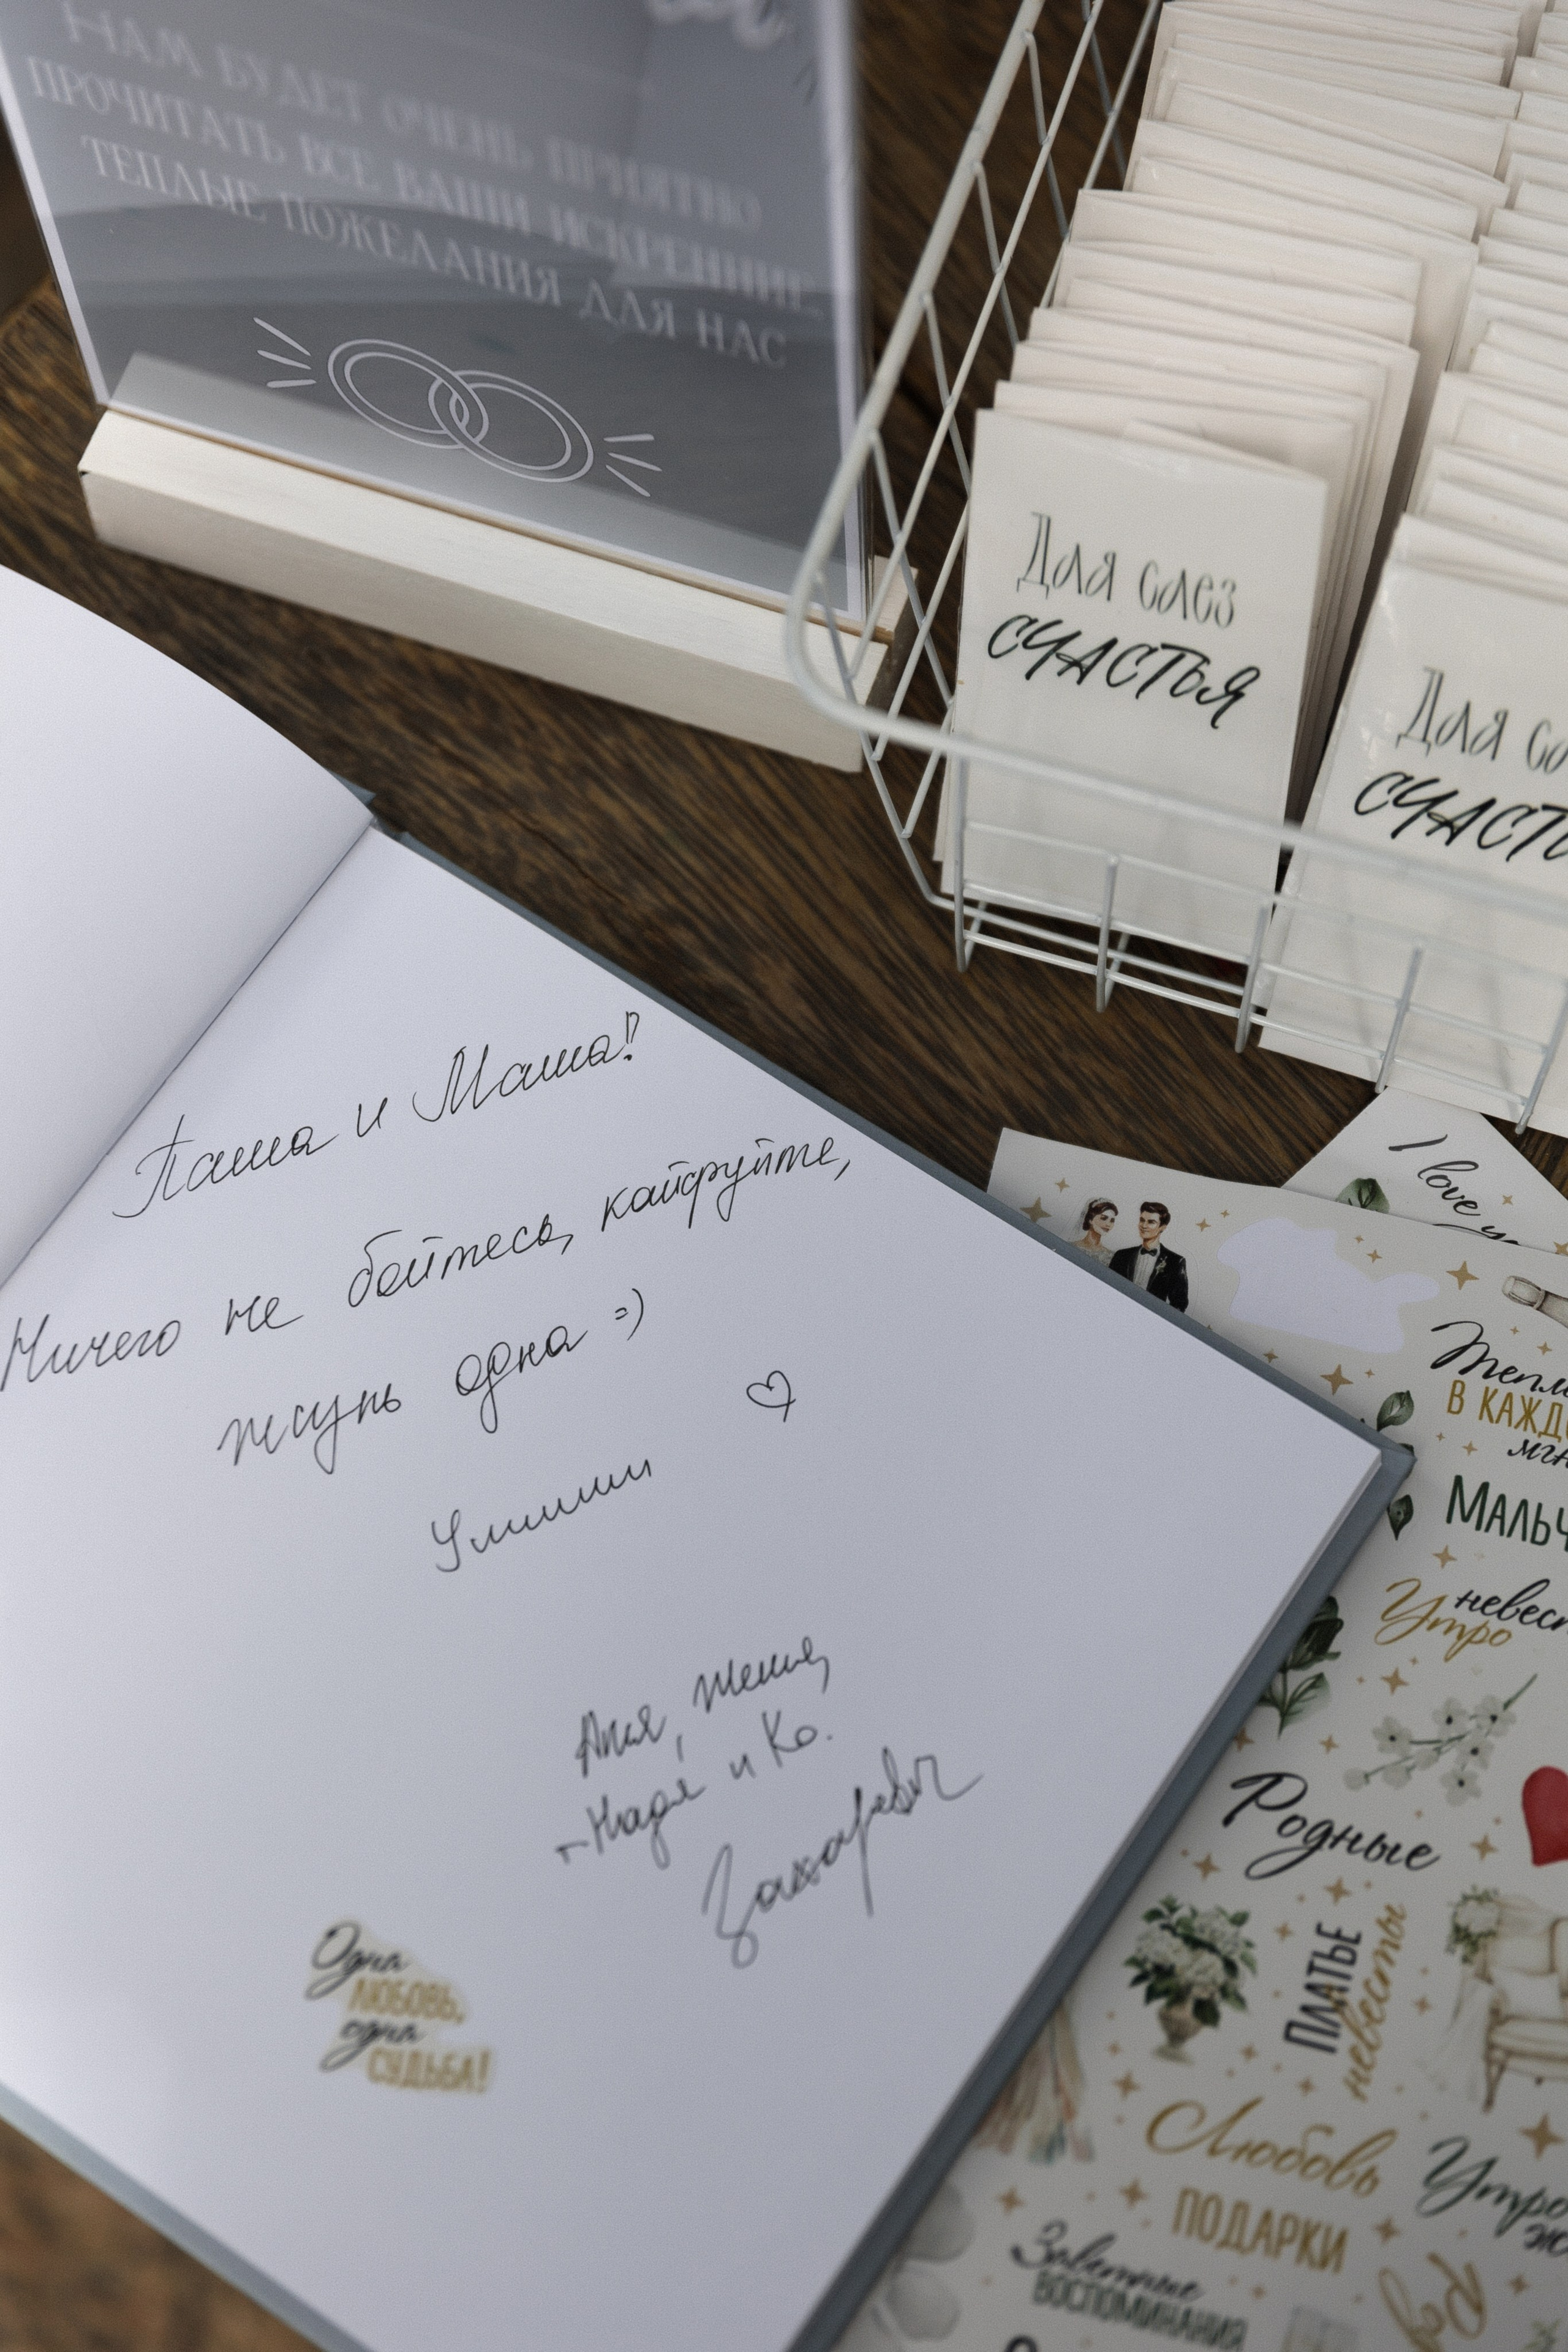 НАМ БУДЕТ ОЧЕНЬ ПРИЯТНО
ПРОЧИТАТЬ ВСЕ ВАШИ ИСКРЕННИЕ
ТЕПЛЫЕ ПОЖЕЛАНИЯ ДЛЯ НАС
Для слез
СЧАСТЬЯ
Для сл
СЧАСТЬ
Паша и Маша!
Ничего не бойтесь, кайфуйте,
жизнь одна =)
Аня, Женя,
Надя и Ко.
Захаревич
Одна
ЛЮБОВЬ,
одна
СУДЬБА!
I love
В КАЖД
МАЛЬЧ
невест
Утро
Родные
ПЛАТЬЕ
невесты
Любовь
Утро
ПОДАРКИ
Заветные
ВОСПОМИНАНИЯ